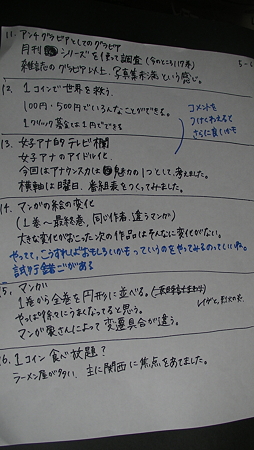 11. アンチグラビアとしてのグラビア
月刊 シリーズを使って調査(今のところ17冊)
雑誌のグラビア以上、写真集未満という感じ。
12. 1コインで世界を救う
100円・500円でいろんなことができる。
1クリック募金は1円でできる
コメントを
つけくわえると
さらに良いかも
13. 女子アナ的テレビ欄
女子アナのアイドル化
今回はアナウンスカは 魅力の1つとして、考えました。
横軸は曜日、番組表をつくってみました。
14. マンガの絵の変化
(1巻~最終巻、同じ作者、違うマンガ)
大きな変化があこった次の作品はそんなに変化がない。
やってて、こうすればおもしろいかもっていうのをやってみるのっていいね。
試行錯ごがある
15. マンガ
1巻から全巻を円形に並べる。
やっぱ徐々にうまくなってると思う。
マンガ家さんによって変遷具合が違う。
16. 1コイン食べ放題?
ラーメン屋が多い 主に関西に焦点をあてました。